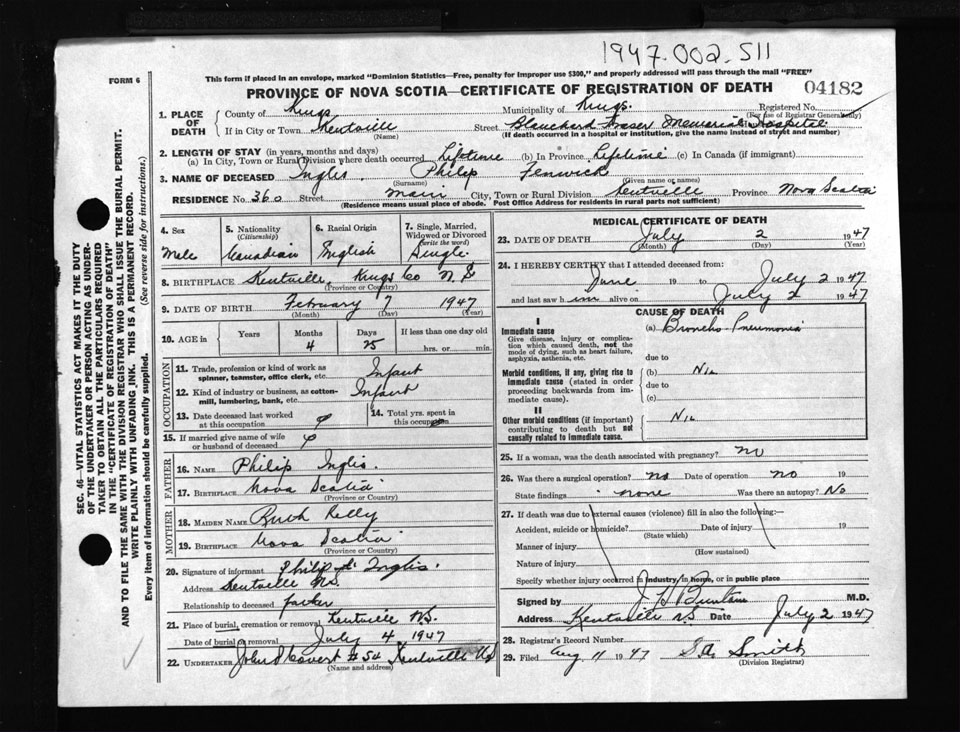 1947.002.511
FORM 6
This form if placed in an envelope, marked "Dominion Statistics—Free, penalty for improper use $300," and properly addressed will pass through the mail "FREE"
PROVINCE OF NOVA SCOTIA—CERTIFICATE OF REGISTRATION OF DEATH 04182
1. PLACE OF DEATH County of Kings Municipality of Kings. Registered No. (For use of Registrar General only)
If in City or Town Kentville (Name) Street Blanchard Fraser Memorial Hospital
(If death occurred in a hospital or institution, give the name instead of street and number)
2. LENGTH OF STAY (in years, months and days)
(a) In City, Town or Rural Division where death occurred Lifetime (b) In Province Lifetime (c) In Canada (if immigrant)
3. NAME OF DECEASED Inglis. Philip Fenwick
(Surname) (Given name or names)
RESIDENCE No. 360 Street Main City, Town or Rural Division Kentville Province Nova Scotia
(Residence means usual place of abode. Post Office Address for residents in rural parts not sufficient)
4. Sex Male
5. Nationality (Citizenship) Canadian
6. Racial Origin English
7. Single, Married, Widowed or Divorced (write the word) Single
8. BIRTHPLACE Kentville Kings Co N.S
(Province or Country)
9. DATE OF BIRTH February 7 1947
(Month) (Day) (Year)
10. AGE in Years Months 4 Days 25 If less than one day old hrs. or min.
OCCUPATION
11. Trade, profession or kind of work as spinner, teamster, office clerk, etc. Infant
12. Kind of industry or business, as cotton-mill, lumbering, bank, etc. Infant
13. Date deceased last worked at this occupation
14. Total yrs. spent in this occupation
15. If married give name of wife or husband of deceased
FATHER
16. Name Philip Inglis.
17. Birthplace Nova Scotia
(Province or Country)
MOTHER
18. Maiden Name Ruth Kelly
19. Birthplace Nova Scotia
(Province or Country)
20. Signature of informant Philip Inglis.
Address Kentville N.S.
Relationship to deceased father
21. Place of burial, cremation or removal Kentville N.S.
Date of burial or removal July 4 1947
22. Undertaker John D Covert # 54 Kentville NS
(Name and address)
MEDICAL CERTIFICATE OF DEATH
23. DATE OF DEATH July 2 1947
(Month) (Day) (Year)
24. I HEREBY CERTIFY that I attended deceased from:
June 19 to July 2 1947
and last saw him alive on July 2 1947
CAUSE OF DEATH
I
Immediate cause
Give disease, injury or complication which caused death, not the mode of dying, such as heart failure, asphyxia, asthenia, etc.
(a) Broncho Pneumonia
due to
Morbid conditions, if any, giving rise to immediate cause (stated in order proceeding backwards from immediate cause).
(b) Nil
due to
(c)
II
Other morbid conditions (if important) contributing to death but not causally related to immediate cause.
Nil
25. If a woman, was the death associated with pregnancy? no
26. Was there a surgical operation? no Date of operation no 19
State findings none Was there an autopsy? No
27. If death was due to external causes (violence) fill in also the following:—
Accident, suicide or homicide? Date of injury 19
(State which)
Manner of injury
(How sustained)
Nature of injury
Specify whether injury occurred in industry, in home, or in public place
Signed by M.D.
Address Kentville NS Date July 2 1947
28. Registrar's Record Number
29. Filed Aug 11 1947 Smith
(Division Registrar)
SEC. 46—VITAL STATISTICS ACT MAKES IT THE DUTY
OF THE UNDERTAKER OR PERSON ACTING AS UNDER-
TAKER TO OBTAIN ALL THE PARTICULARS REQUIRED
IN THE "CERTIFICATE OF REGISTRATION OF DEATH"
AND TO FILE THE SAME WITH THE DIVISION REGISTRAR WHO SHALL ISSUE THE BURIAL PERMIT.
WRITE PLAINLY WITH UNFADING INK. THIS IS A PERMANENT RECORD.
Every item of information should be carefully supplied. (See reverse side for instructions.)